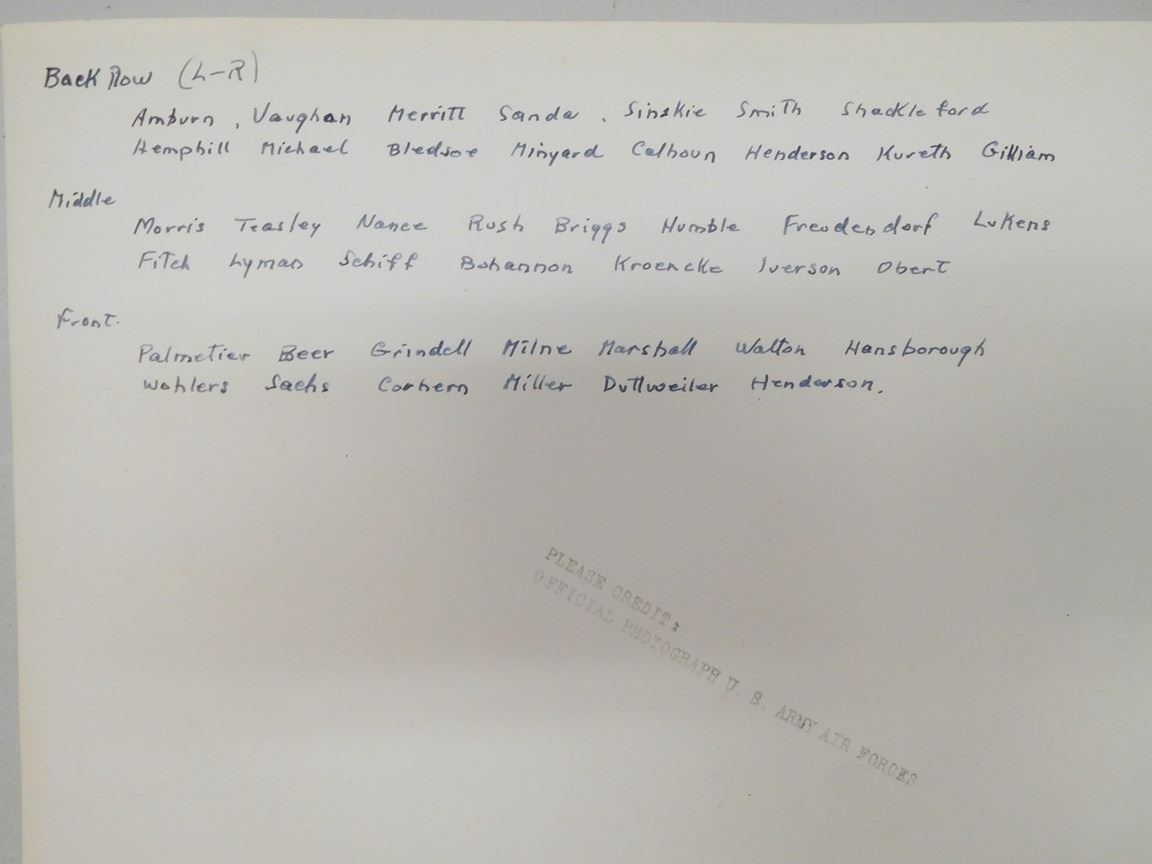 Back Row (L-R)
Amburn, Vaughan Merritt Sanda, Sinskie Smith Shackleford
Hemphill Michael Bledsoe Minyard Calhoun Henderson Kureth Gilliam
Middle
Morris Teasley Nance Rush Briggs Humble Freudendorf Lukens
Fitch Lyman Schiff Bohannon Kroencke Iverson Obert
Front.
Palmetier Beer Grindell Milne Marshall Walton Hansborough
Wohlers Sachs Corbern Miller Duttweiler Henderson.
PLEASE CREDIT:
OFFICIAL PHOTOGRAPH U. S. ARMY AIR FORCES